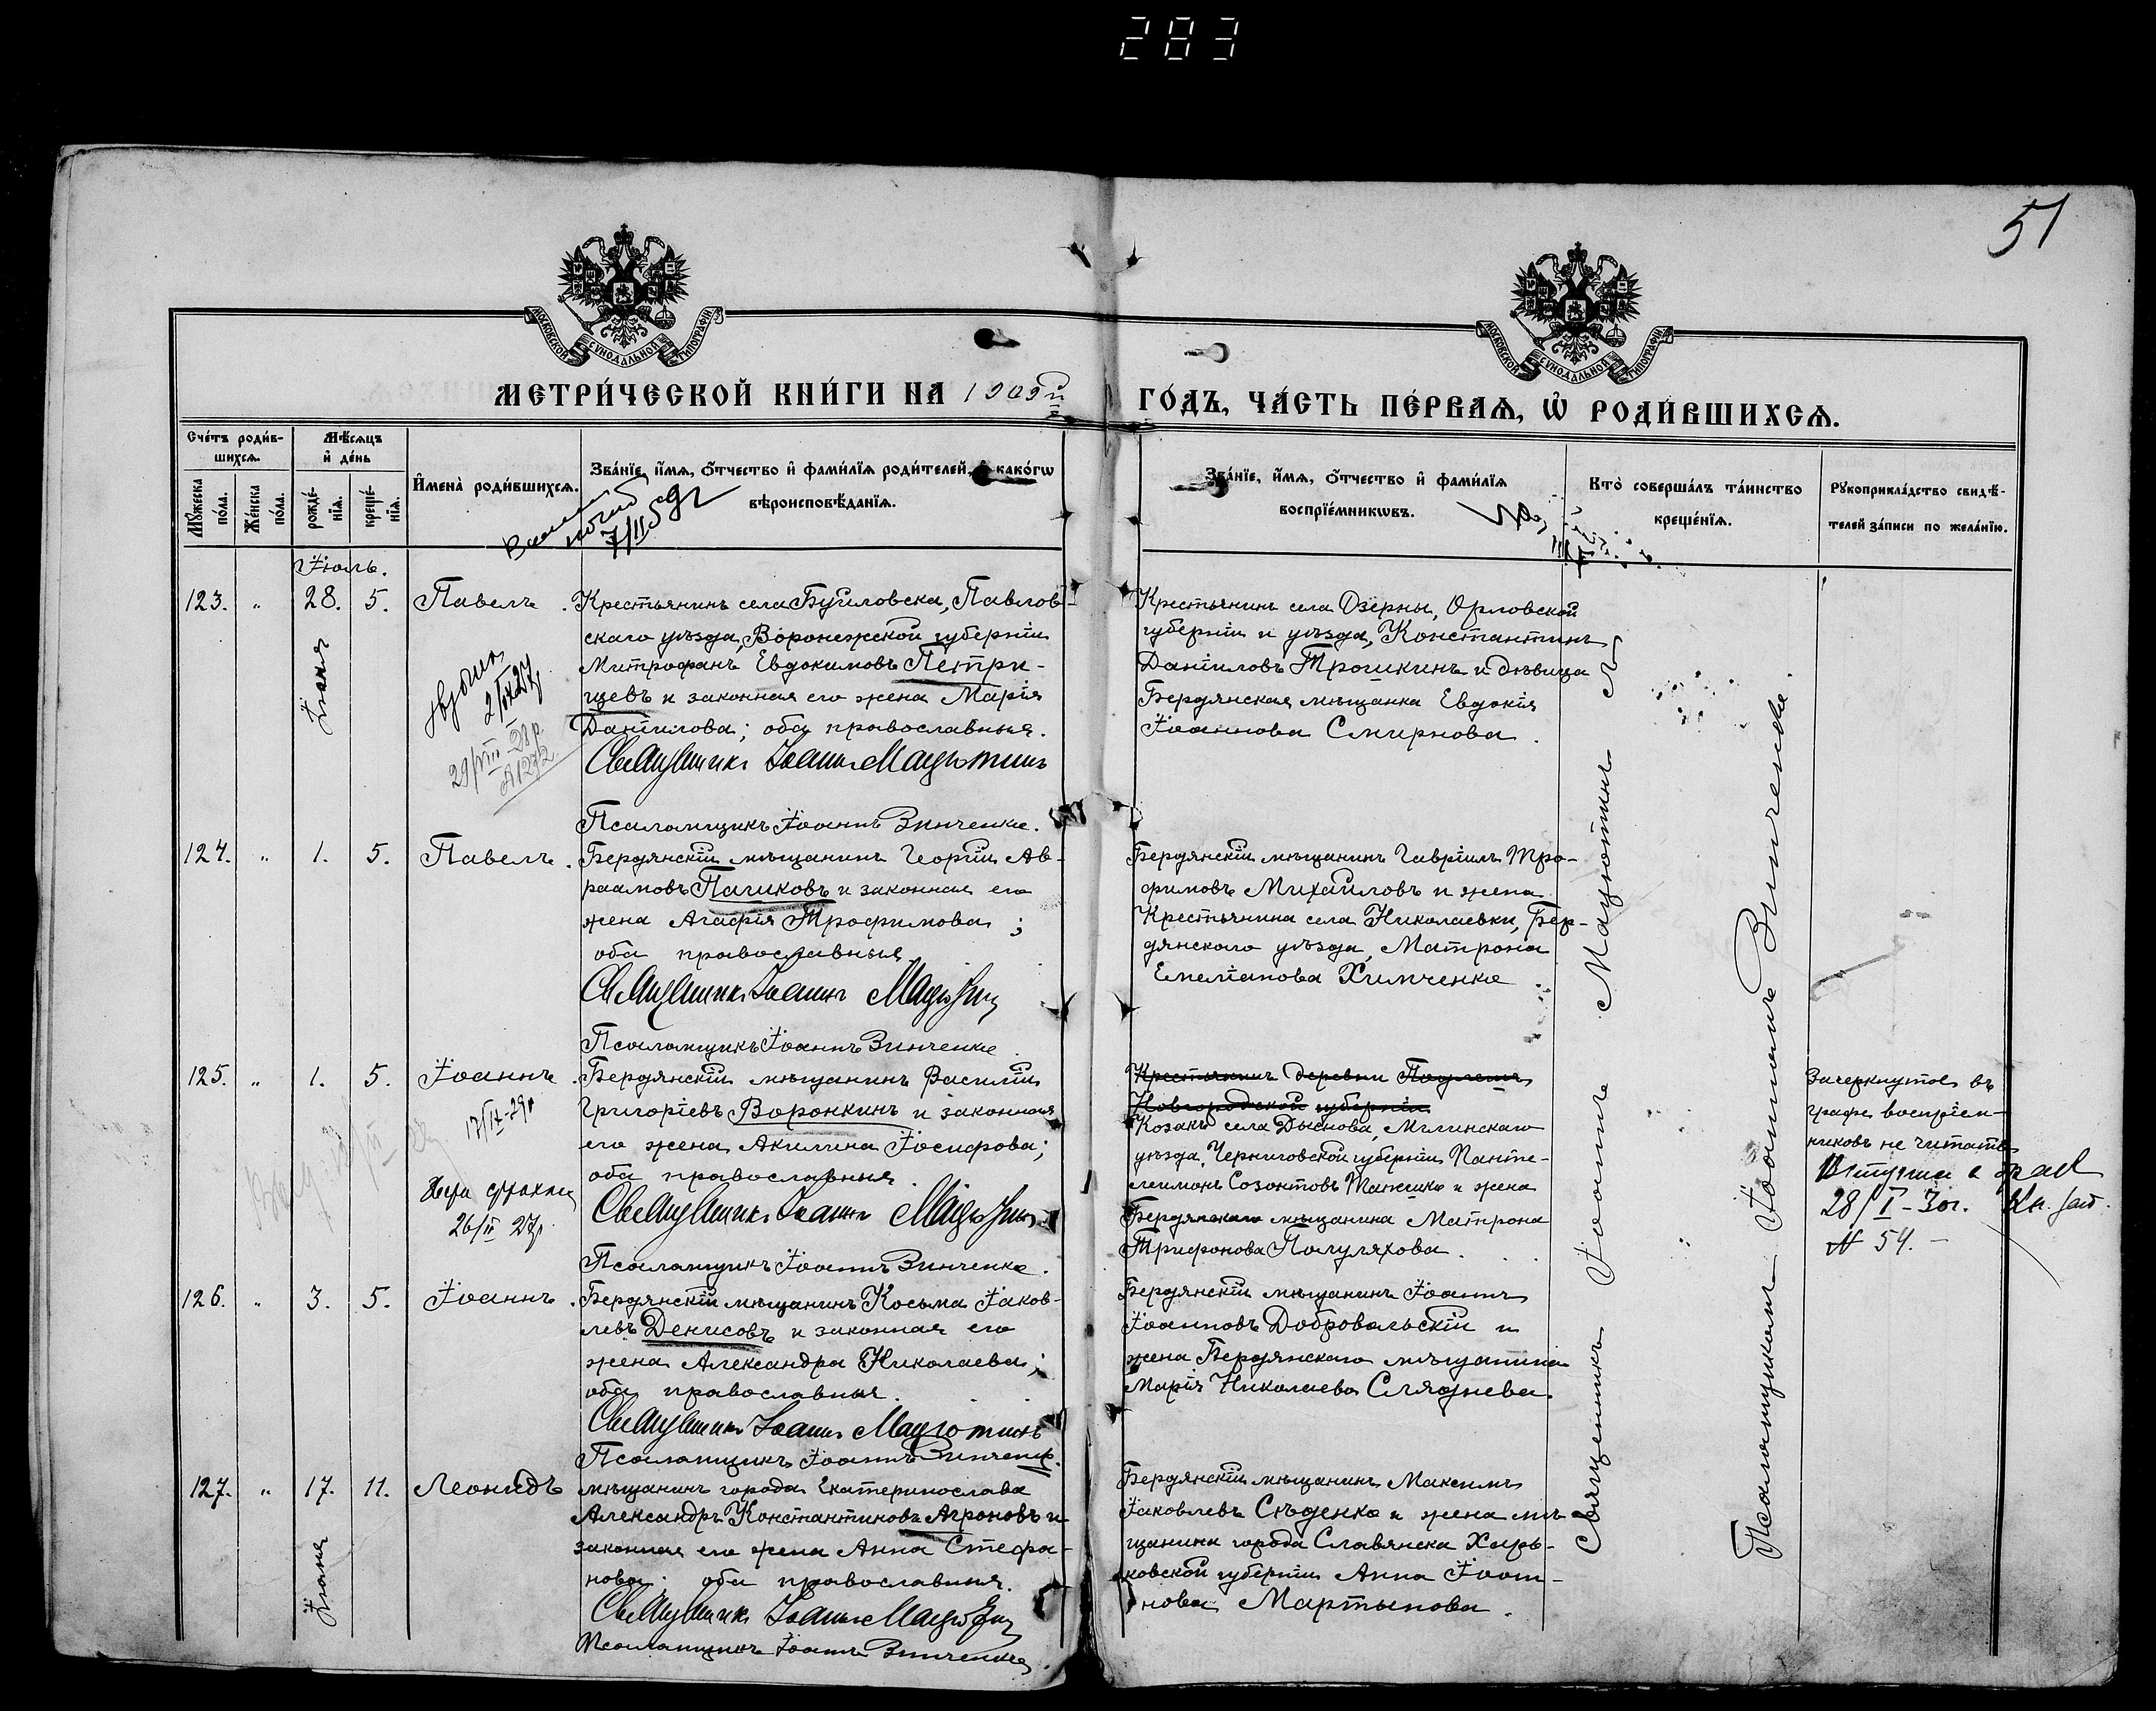 283
51
МОСКОВСКОЙ СѴНОДАЛЬНОЙ ТИПОГРАФІИ
МОСКОВСКОЙ СѴНОДАЛЬНОЙ ТИПОГРАФІИ
МЕТРИ́ЧЕСКОЙ КНИ́ГИ НА 1909й
ГО́ДЪ, ЧА́СТЬ ПЕ́РВАѦ, Ѡ҆ РОДИ́ВШИХСѦ.
Сче́тъ роди́в-
шихсѧ.
Мѣ́сѧцъ
и҆ де́нь
Мꙋ́жеска
по́ла.
Же́нска
по́ла.
рожде́-
нїѧ.
креще́-
нїѧ.
И҆мена̀ роди́вшихсѧ.
Зва́нїе, и҆́мѧ, ѻ҆́тчество и҆ фами́лїѧ роди́телей, и҆ како́гѡ
вѣроисповѣ́данїѧ.
Зва́нїе, и҆́мѧ, ѻ҆́тчество и҆ фами́лїѧ
воспрїе́мникѡвъ.
Кто̀ соверша́лъ та́инство
креще́нїѧ.
Рꙋкоприкла́дство свидѣ́-
телей за́писи по жела́нїю.
Іюль.
123. " 28. 5. Павелъ.
Іюня
Крестьянинъ села Буйловска, Павлов-
скаго уѣзда, Воронежской губерніи
Митрофанъ Евдокимовъ Петри-
щевъ и законная его жена Марія
Даніилова; оба православныя.
Священникъ Іоаннъ Мацютинъ
Псаломщикъ Іоаннъ Зинченко.
Крестьянинъ села Озерны, Орловской
губерніи и уѣзда, Константинъ
Даніиловъ Трошкинъ и дѣвица
Бердянская мѣщанка Евдокія
Іоаннова Смирнова.
124. " 1. 5. Павелъ.
Бердянскій мѣщанинъ Георгій Ав-
раамовъ Пашковъ и законная его
жена Агафія Трофимова;
оба православныя.
Священникъ Іоаннъ Мацютинъ
Псаломщикъ Іоаннъ Зинченко.
Бердянскій мѣщанинъ Гавріилъ Тро-
фимовъ Михайловъ и жена
Крестьянина села Николаевки, Бер-
дянскаго уѣзда, Матрона
Емеліанова Химченко
125. " 1. 5. Іоаннъ.
17/IV-29г
26/II 27г.
Бердянскій мѣщанинъ Василій
Григоріевъ Воронкинъ и законная
его жена Акилина Іосифова;
оба православныя.
Священникъ Іоаннъ Мацютинъ
Псаломщикъ Іоаннъ Зинченко.
Крестьянинъ деревни
Новгородской губерніи
Козакъ села Дыскова, Мглинскаго
уѣзда, Черниговской губерніи Панте-
леимонъ Созонтовъ и жена
Бердянскаго мѣщанина Матрона
Трифонова Полуляхова.
Зачеркнутое въ
графѣ воспріем-
никовъ не читать
28/I-30г.
N 54.-
126. " 3. 5. Іоаннъ.
Бердянскій мѣщанинъ Косьма Іаков-
левъ Денисовъ и законная его
жена Александра Николаева;
оба православныя.
Священникъ Іоаннъ Мацютинъ
Псаломщикъ Іоаннъ Зинченко.
Бердянскій мѣщанинъ Іоаннъ
Іоанновъ Добровольскій и
жена Бердянскаго мѣщанина
Марія Николаева Сляднева.
127. " 17. 11. Леонидъ
Іюня
мѣщанинъ города Екатеринослава
Александръ Константиновъ Агроновъ и
законная его жена Анна Стефа-
нова; оба православныя.
Священникъ Іоаннъ Мацютинъ
Псаломщикъ Іоаннъ Зинченко.
Бердянскій мѣщанинъ Максимъ
Іаковлевъ Съеденко и жена мѣ-
щанина города Славянска Харь-
ковской губерніи Анна Іоан-
нова Мартынова.
Священникъ Іоаннъ Мацютинъ
Псаломщикъ Іоаннъ Зинченко.